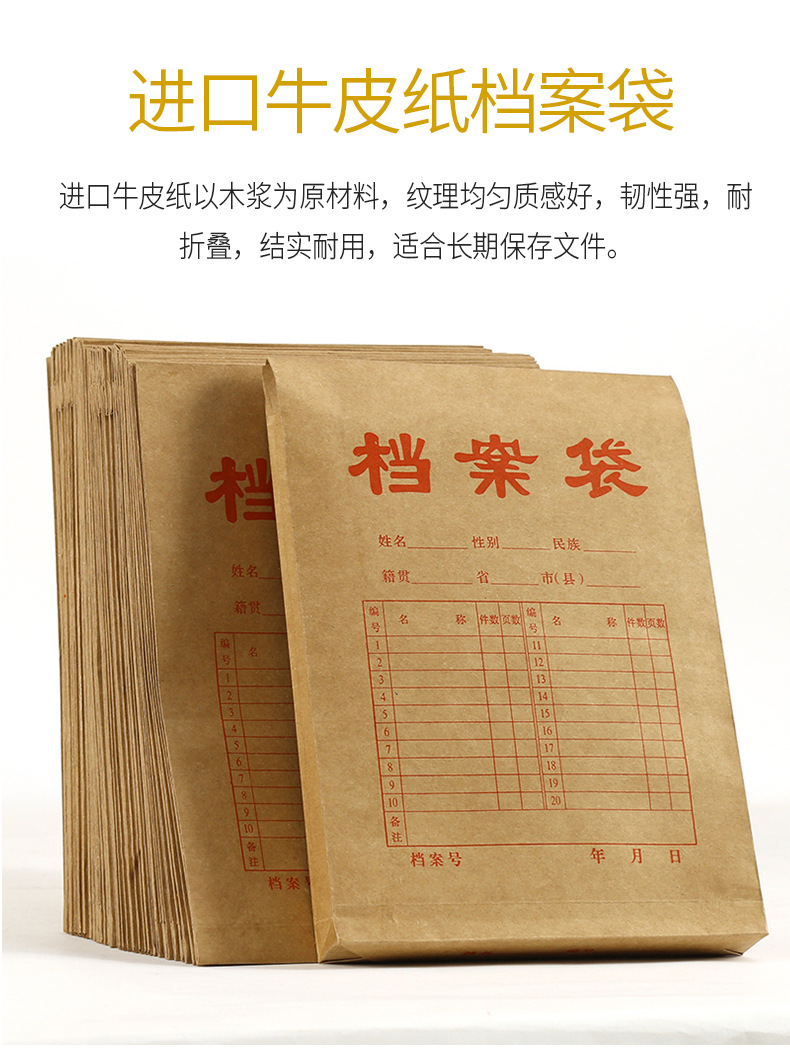 进口牛皮纸档案袋
进口牛皮纸以木浆为原材料，纹理均匀质感好，韧性强，耐
折叠，结实耐用，适合长期保存文件。
档案袋
姓名______ 性别_____ 民族______
籍贯______省_____市(县)_____
编号 名 称 件数 页数 编号 名 称 件数 页数
1 11
2 12
3 13
4 14
5 15
6 16
7 17
8 18
9 19
10 20
备注
档案号 年 月 日
档
姓名
籍贯
编号 名
1
2
3
4
5
6
7
8
9
10
备注
档案号